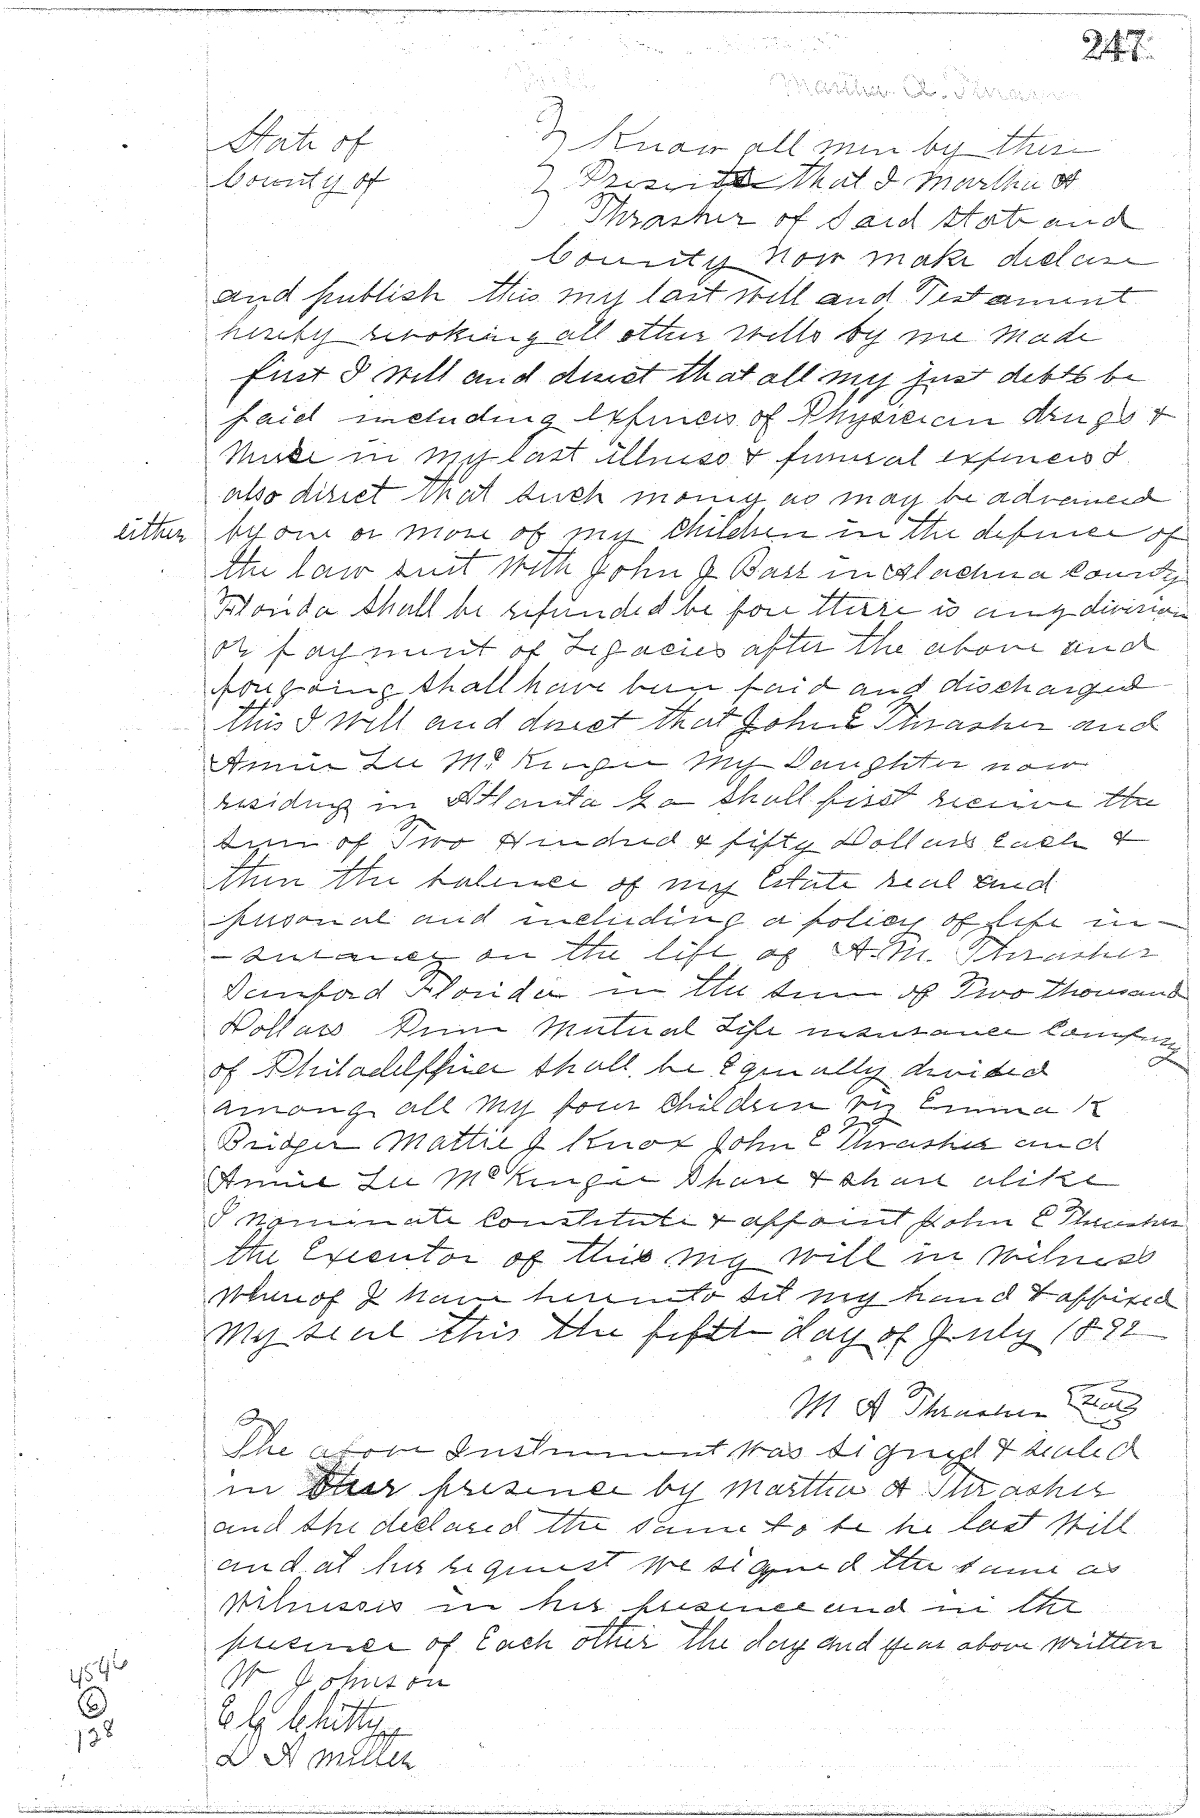 247
Martha A. Thrasher
State of } Know all men by these
County of } Presents that I Martha A
) Thrasher of Said State and
County now make declare
and publish this my last Will and Testament
hereby revoking all other Wills by me Made
first I Will and direct that all my just debts be
paid including Expences of Physician drugs &
Nurse in my last illness & funeral expences I
also direct that such money as may be advanced
either by one or more of my Children in the defence of
the law suit With John J Barr in Alachua County
Florida Shall be refunded be fore there is any division
or payment of Legacies after the above and
foregoing Shall have been paid and discharged
this I Will and direct that John E Thrasher and
Annie Lee McKenzie My Daughter now
residing in Atlanta Ga Shall first receive the
sum of Two Hundred & fifty Dollars Each &
then the balence of my Estate real and
personal and including a policy of life in-
-surance on the life of A. M. Thrasher
Sanford Florida in the sum of Two thousand
Dollars Penn Mutual Life insurance Company
of Philadelphia Shall be Equally divided
among all My four Children viz Emma K
Bridger Mattie J Knox John E Thrasher and
Annie Lee McKenzie Share & share alike
I nominate Constitute & appoint John E Thrasher
the Executor of this my will in Witness
Whereof I have hereunto set my hand & affixed
My seal this the fifth day of July 1892
M A Thrasher Seal
The above Instrument was signed & sealed
in Our presence by Martha A Thrasher
and she declared the same to be he last Will
and at her request We signed the same as
Witnesses in her presence and in the
presence of Each other the day and year above Written
W Johnson
E G Chitty
D A Miller
4546
6
128